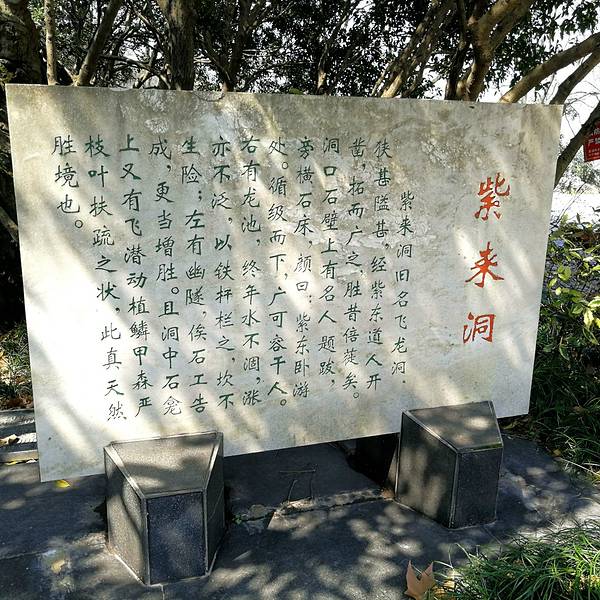 紫来洞
紫来洞旧名飞龙洞.
狭甚隘甚,经紫东道人开
凿,拓而广之,胜昔倍蓰矣。
洞口石壁上有名人题跋,
旁横石床,颜曰:紫东卧游
处。循级而下,广可容千人。
右有龙池,终年水不涸,涨
亦不泛,以铁杆栏之,坎不
生险;左有幽隧,俟石工告
成,更当增胜。且洞中石龛
上又有飞潜动植鳞甲森严
枝叶扶疏之状,此真天然
胜境也。